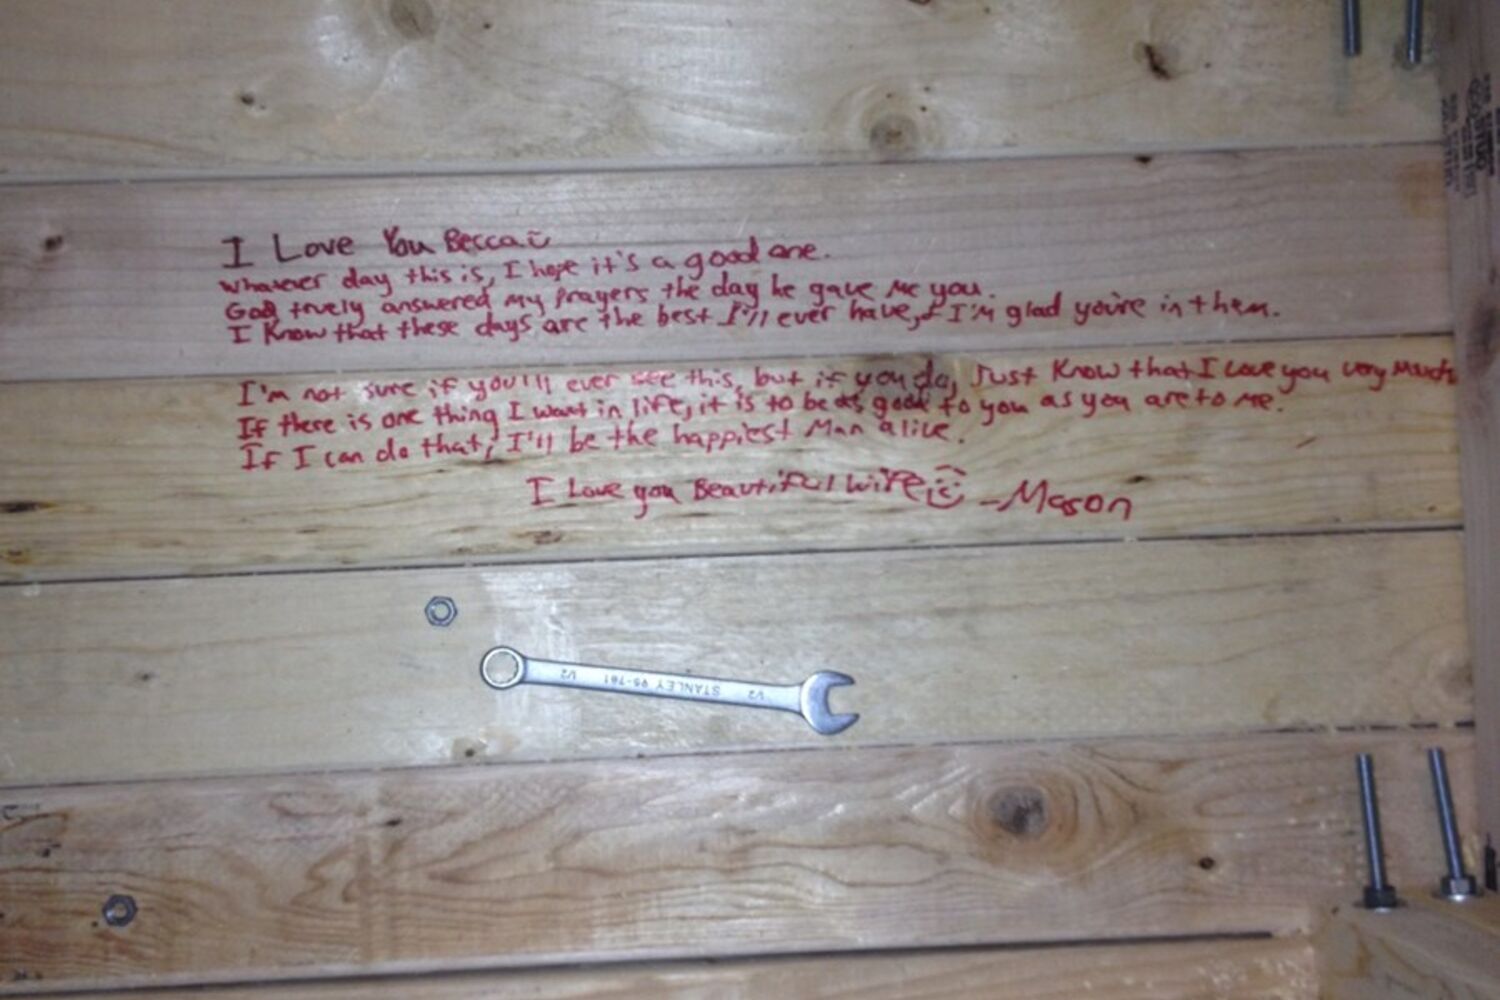 I Love You Becca
whatever day this is, I hope it's a good one.
God truely answered my prayers the day he gave me you.
I know that these days are the best I'll ever have, & I'm glad you're in them.
I'm not sure if you'll ever see this, but if you do, Just know that I Love you very much
If there is one thing I want in life, it is to be as good to you as you are to me.
If I can do that, I'll be the happiest Man alive.
I Love you Beautiful Wife
-Mason
1/2 STANLEY 95-781 1/2